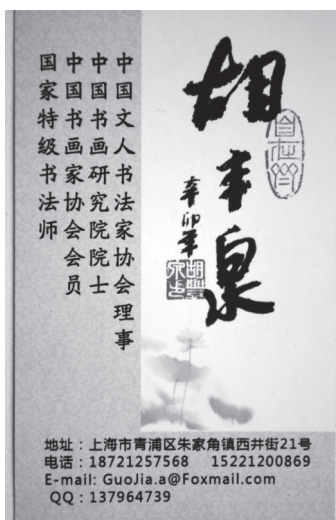 胡丰泉
辛卯年
中国文人书法家协会理事
中国书画研究院院士
中国书画家协会会员
国家特级书法师
地址：上海市青浦区朱家角镇西井街21号
电话：18721257568 15221200869
E-mail: GuoJia.a@Foxmail.com
QQ：137964739